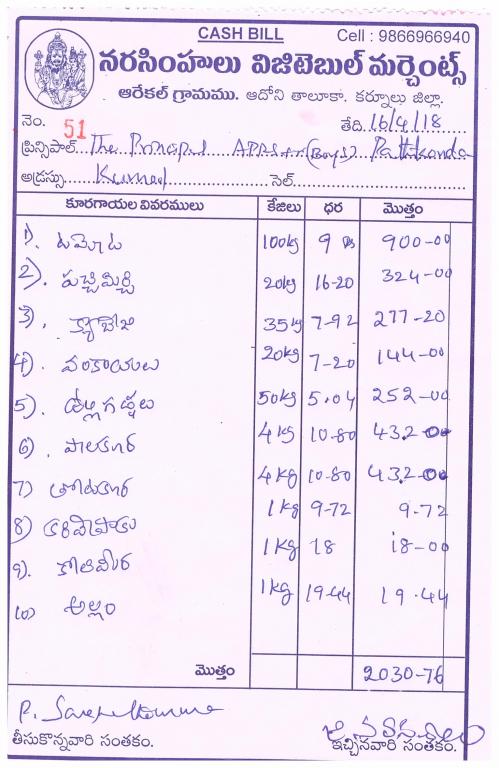 CASH BILL Cell : 9866966940
నరసింహులు విజిటెబుల్ మర్చెంట్స్
ఆరేకల్ గ్రామము. ఆదోని తాలూకా. కర్నూలు జిల్లా.
నెం. 51 తేది. 16/4/18
ప్రిన్సిపాల్ The Principal APRS (Boys) Pattikonda
అడ్రస్సు Kurnool సెల్
కూరగాయల వివరములు కేజీలు ధర మొత్తం
1). టమోట 100kg 9 Rs 900-00
2). పచ్చిమిర్చి 20kg 16-20 324-00
3). క్యాబేజి 35kg 7-92 277-20
4). వంకాయలు 20kg 7-20 144-00
5). ఉల్లగడ్డలు 50kg 5.04 252-00
6). పాలకూర 4kg 10-80 43.2
7) తోటకూర 4kg 10-80 43.2
8) కరివేపాకు 1kg 9-72 9.72
9). కొతిమీర 1kg 18 18-00
10) అల్లం 1kg 19-44 19.44
మొత్తం 2030-76
తీసుకొన్నవారి సంతకం. ఇచ్చినవారి సంతకం.